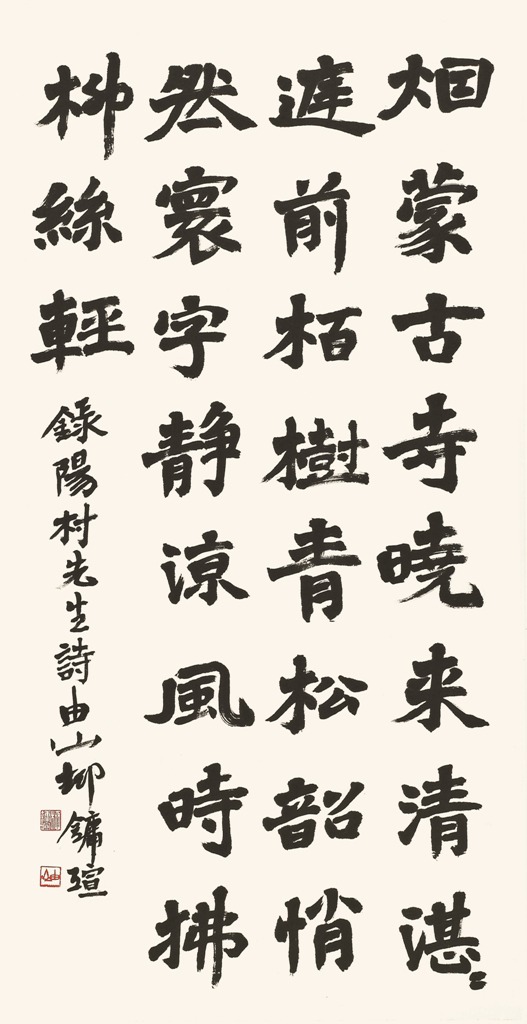 烟蒙古寺曉来清湛〻
庭前栢樹青松韻悄
然寰宇静涼風時拂
柳絲輕 錄陽村先生詩由山柳鏞瑄